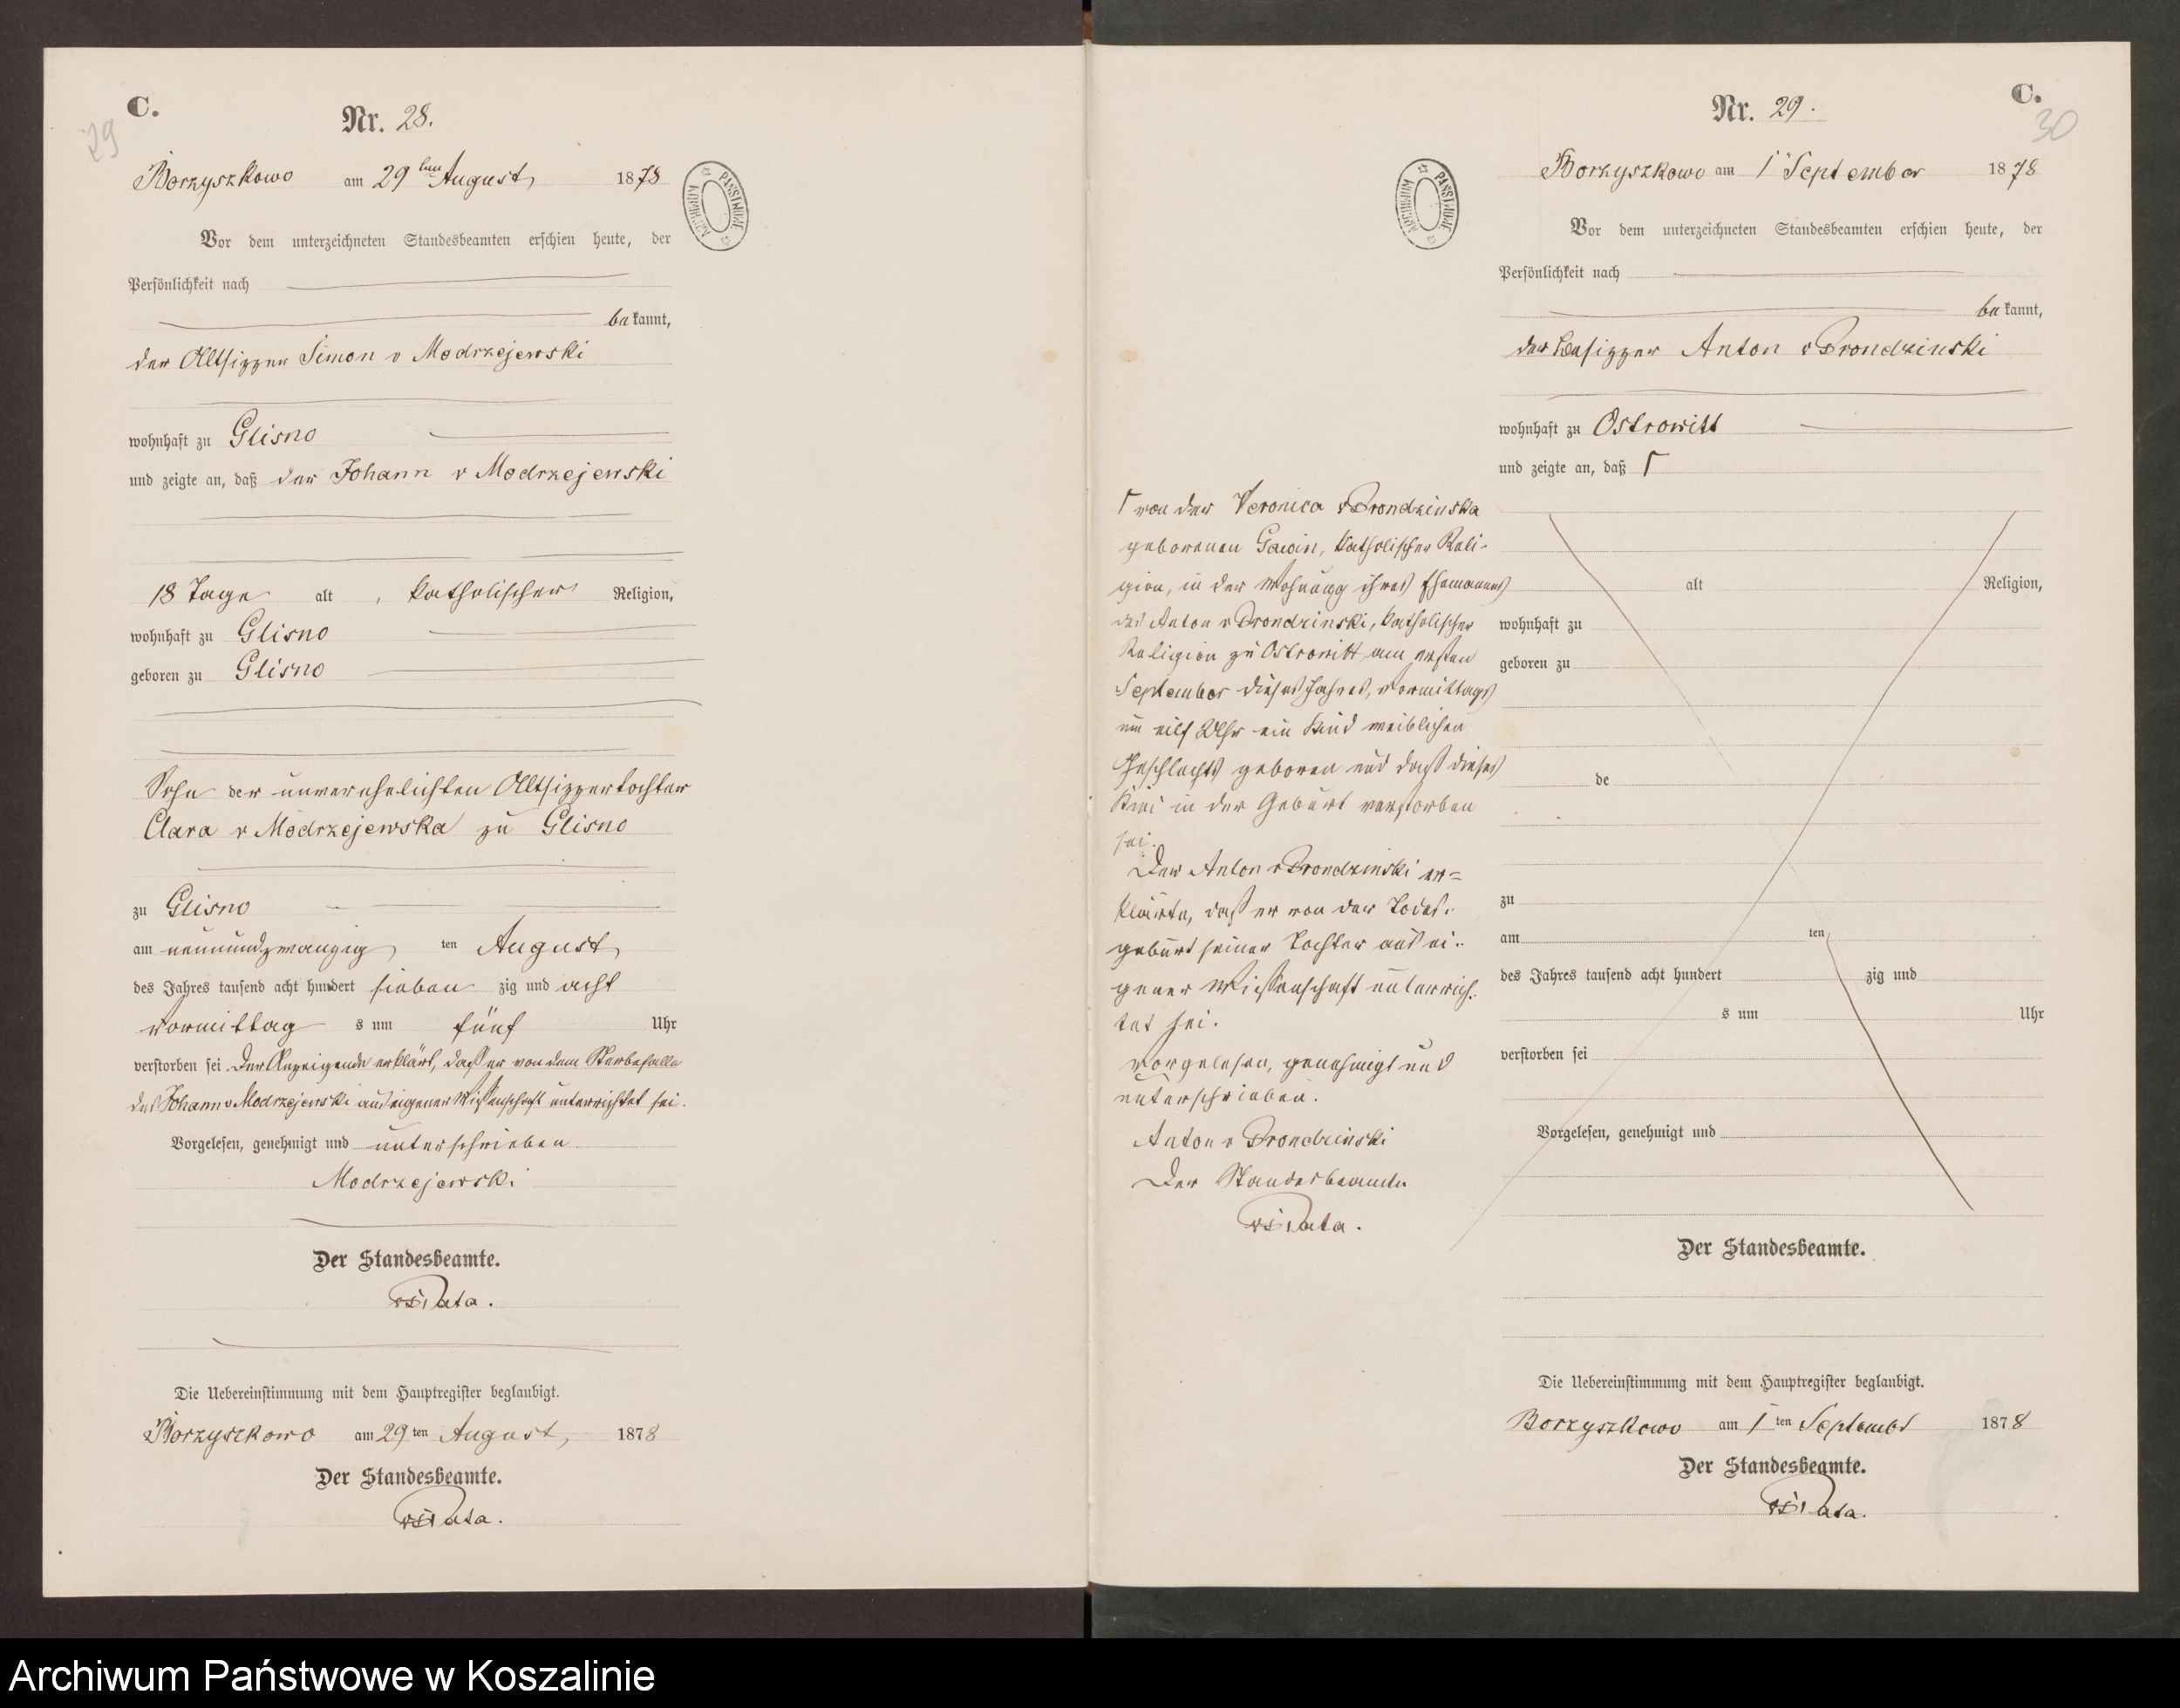 29
C.
Nr. 28.
Borzyszkowo am 29ten August 1878
ARCHIWUM PAŃSTWOWE
Vor dem unterzeichneten Standesbeamten erschien heute, der
Persönlichkeit nach
bekannt,
der Altsitzer Simon v Modrzejewski
wohnhaft zu Glisno
und zeigte an, daß der Johann v Modrzejewski
18 Tage alt, katholischer Religion,
wohnhaft zu Glisno
geboren zu Glisno
Sohn der unverehelichten Altsitzertochter
Clara v Modrzejewska zu Glisno
zu Glisno
am neunundzwanzig ten August
des Jahres tausend acht hundert sieben zig und acht
Vormittag s um fünf Uhr
verstorben sei. Der Anzeigende erklärt, daß er von dem Sterbefalle
des Johann v Modrzejewski aus eigener Wissenschaft unterrichtet sei.
Vorgelesen, genehmigt und unterschrieben
Modrzejewski
Der Standesbeamte.
Die Uebereinstimmung mit dem Hauptregister beglaubigt.
Borzyszkowo am 29 ten August 1878
Der Standesbeamte.
C.
30
Nr. 29.
Borzyszkowo am 1 September 1878
ARCHIWUM PAŃSTWOWE
Vor dem unterzeichneten Standesbeamten erschien heute, der
Persönlichkeit nach
bekannt,
der Besitzer Anton v Prondzinski
wohnhaft zu Ostrowitt
und zeigte an, daß Γ
Γ von der Veronica v Prondzinska
geborenen Gawin, katholischer Reli-
gion, in der Wohnung ihres Ehemannes
des Anton v Prondzinski, katholischer
Religion zu Ostrowitt am ersten
September dieses Jahres, Vormittags
um eilf Uhr ein Kind weiblichen
Geschlechts geboren und daß dieses
Kind in der Geburt verstorben
sei.
Der Anton v Prondzinski er=
klärte, daß er von der Todes-
geburt seiner Tochter aus ei-
gener Wissenschaft unterrich-
tet sei.
Vorgelesen, genehmigt und
unterschrieben.
Anton v Prondzinski
Der Standesbeamte
alt Religion,
wohnhaft zu
geboren zu
de
zu
am ten
des Jahres tausend acht hundert zig und
s um Uhr
verstorben sei
Vorgelesen, genehmigt und
Der Standesbeamte.
Die Uebereinstimmung mit dem Hauptregister beglaubigt.
Borzyszkowo am 1 ten Septembr 1878
Der Standesbeamte.
Archiwum Państwowe w Koszalinie